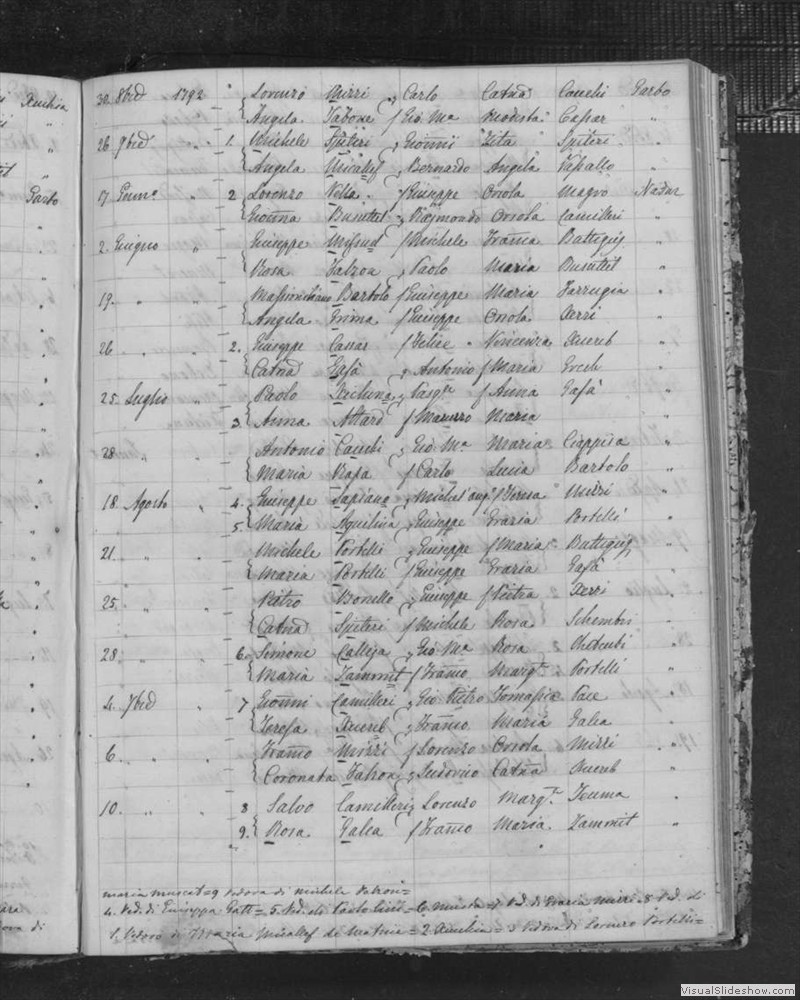 Xeuchia
30. 8bre 1792 " Lorenzo Mizzi " Carlo Catnã Cauchi Garbo
Angela Tabone f Giõ Ma Modesta Cassar "
26. 9bre " 1. Michele Spiteri " Giovñi Zita Spiteri "
Angela Micallef " Bernardo Angela Vassallo "
Garbo
17 Genn° " 2 Lorenzo Vella f Giuseppe Orsola Magro Nadur
Giovña Busuttil " Raymondo Orsola Camilleri "
2. Giugno " Giuseppe Mifsud f Michele Franca Buttigieg "
Rosa Falzon " Paolo Maria Busuttil "
19. " Bartolo f Giuseppe Maria Farrugia "
Angela Grima f Giuseppe Orsola Xerri "
26 " " 2. Giuseppe Cassar f Felice Vincenza Xuereb "
Catnã Gafà " Antonio f Maria "
25. Luglio " Paolo " f Anna Gafà "
3. Anna Attard f Maria
28 " Antonio Cauchi " Giõ Ma Maria Ciappisa "
Maria Rapa f Carlo Lucia Bartolo "
18. Agosto " 4. Giuseppe Sapiano " Michel'ang° f Teresa Mizzi "
5. Maria Aquilina " Giuseppe Grazia Portelli "
21. " " Michele Portelli " Giuseppe f Maria Buttigieg "
Maria Portelli f Giuseppe Grazia Gafà "
25. " " Pietro Bonello " Giuseppe f Pietra Xerri "
Catnã Spiteri f Michele Rosa Schembri "
28 " " 6. Simone Calleja " Giõ Ma Rosa Chetcuti "
Maria Zammit f Franco Margta Portelli "
4. 7bre " 7 Giovñi Camilleri " Giõ Pietro Tomasica Pace "
Teresa Xuereb " Franco Maria Galea "
6. " " Franco Mizzi f Lorenzo Orsola Mizzi "
Coronata Falzon " Ludovico Catnã Xuereb "
10. " " 8 Salvo Camilleri " Lorenzo Margta Touma "
9. Rosa Galea f Franco Maria Zammit "
maria muscat = 9 vedova di michele
4. Ved. di Giuseppa Gatt = 5. Ved. di Paolo = 6. = 7 Ved. di Grazia mizzi 8 Ved. di
1. Vedovo di Grazia Micallef = 2 Xeuchia = 3 vedova di Lorenzo Portelli =
VisualSlideshow.com